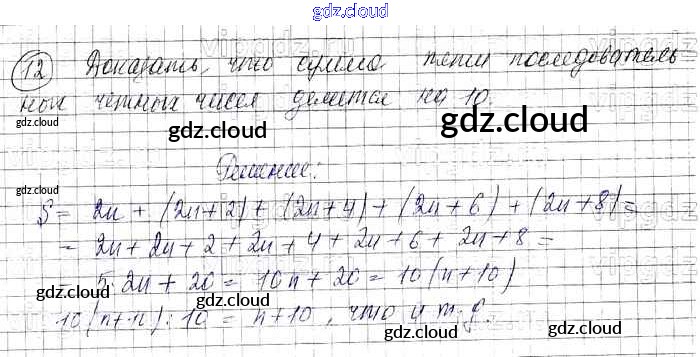 gdz.cloud
12 Доказать, что сумма пяти последователь
ных четных чисел делится на 10.
gdz.cloud gdz.cloud
Решение:
gdz.cloud
S = 2n + (2n+2) + (2n+4) + (2n+6) + (2n+8) =
= 2n + 2n + 2 + 2n + 4 + 2n + 6 + 2n + 8 =
5·2n + 20 = 10n + 20 = 10(n+10)
gdz.cloud gdz.cloud gdz.cloud
10(n+n) : 10 = n+10, что и т.д.
gdz.cloud